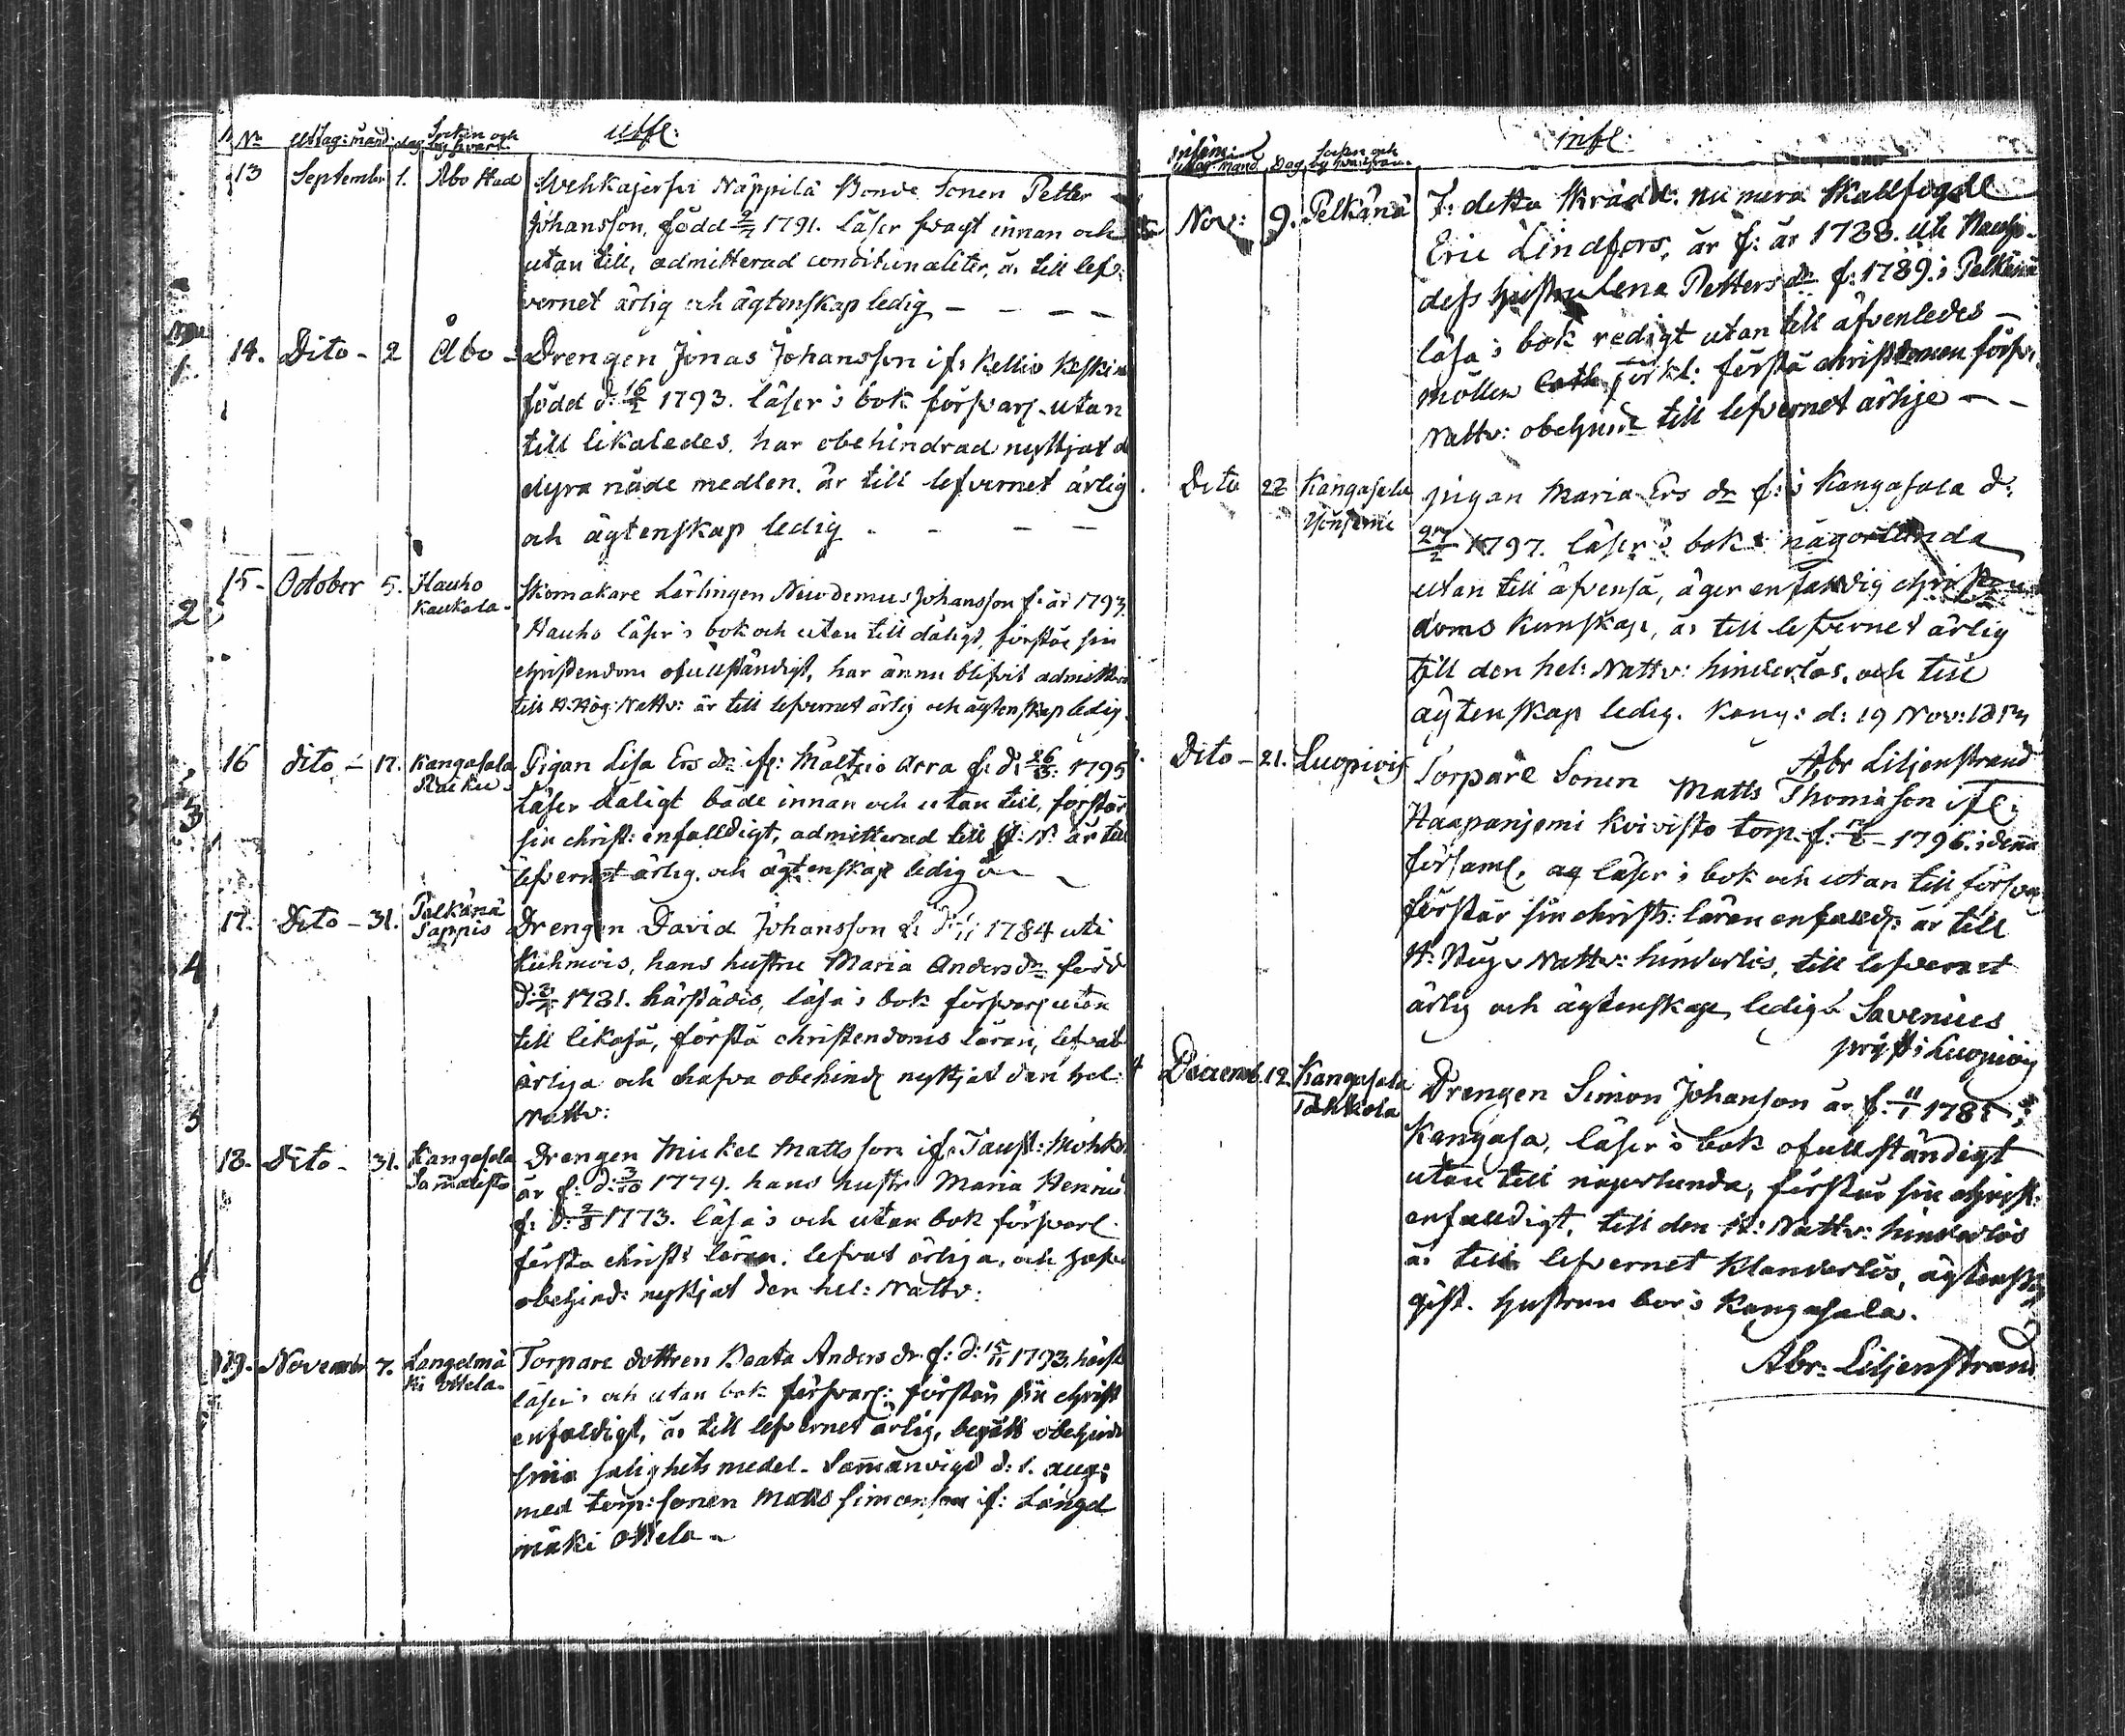 No Uttag: månd: dag Socken och by hvart. utfl:
13 Septembr 1. Åbo Stad Wehkajerfvi Näppilä Bonde Sonen Petter
Johansson, född 1791. läser svagt innan och
utan till, admitterad conditionaliter, är till lef-
vernet ärlig och ägtenskap ledig — — — —
14. Dito - 2 Åbo - Drengen Jonas Johansson if: Kellio Keski
född d: 16/2 1793. läser i bok försvarl. utan
till likaledes. har obehindrad nyttjat d
dyra nåde medlen. är till lefvernet ärlig
och ägtenskap ledig - - — —
15- October 5. Hauho Kaukola- Skomakare Lärlingen Nicodemus Johansson f: år 1793
Hauho läser i bok och utan till dåligt, förstår sin
christendom ofullständigt, har ännu blifvit admitterad
till H. Hög: Nattv: är till lefvernet ärlig och ägtenskap ledig.
16 dito - 17. Kangasala Raikku Pigan Lisa Ers dr ifl: Maltzio Arra f: d: 26/3: 1795
Läser dåligt både innan och utan till, förstår
sin christ: enfalldigt, admitterad till H: N: är till
lefvernet ärlig. och ägtenskap ledig
17. Dito - 31. Palkänä Sappis Drengen David Johansson 1784 uti
Kuhmois, hans hustru Maria Anders dr född
1781. härstädes, läsa i bok försvarl utan
till likaså, förstå christendoms läran, lefvat
ärliga och hafva obehind nyttjat den hel:
Nattv:
18. Dito - 31. Kangasala Sammalisto Drengen Mickel Mattsson if: Taust: Mohko
är f: d: 3/10 1779. hans hustr Maria Henrics
f: d: 2/8 1773. läsa i och utan bok försvarl.
förstå christ: läran. lefvat ärliga, och hafva
obehind: nyttjat den hel: Nattv:
19. Novembr 7. Langelmä ki Attela- Torpare dottren Beata Anders dr. f: d: 15/11 1793. härst
läser i och utan bok försvarl: förstår sin christ
enfaldigt, är till lefvernet ärlig, begått obehind
sina salighets medel. Sammanvigd d: 1. aug:
med torp: sonen Matts Simonsson if: Längel
mäki Attela -
Dag Socken och by hvarifrån. infl:
Nov: 9. Pelkänä F: detta Skrädd: nu mera Skallfogde
Eric Lindfors, är f: år 1788. uti
dess hustru Lena Petters dr f: 1789. i Pelkänä
läsa i bok redigt utan till äfvenledes —
förkl: förstå christdomen försv:
Nattv: obehind till lefvernet ärlige — —
Dito 22 Kangasala pigan Maria Ers dr f: i Kangasala d:
27/2 1797. läser i bok någorlunda
utan till äfvenså, äger enfalldig christen
doms kunskap, är till lefvernet ärlig
till den hel: Nattv: hinderlös, och till
ägtenskap ledig. Kang: d: 19 Nov: 1813
Abr Liljenstrand
Dito - 21. Luopiois Torpare Sonen Matts Thomasson ifl:
Haapanjemi Kvivisto torp. f: 1796. i denna
församl. läser i bok och utan till försvar
förstår sin christ: läran enfalld: är till
H: Nattv: hinderlös, till lefvernet
ärlig och ägtenskap ledig Savenius
i Luopiois
Decemb. 12. Kangasala Tohkola Drengen Simon Johanson är f: 11/1 178
Kangasa, läser i bok ofullständigt
utan till någorlunda, förstår sin christ:
enfalldigt, till den H: Nattv: hinderlös
är till lefvernet klanderlös, ägtenskap
gift. hustrun bor i Kangasala.
Abr: Liljenstrand